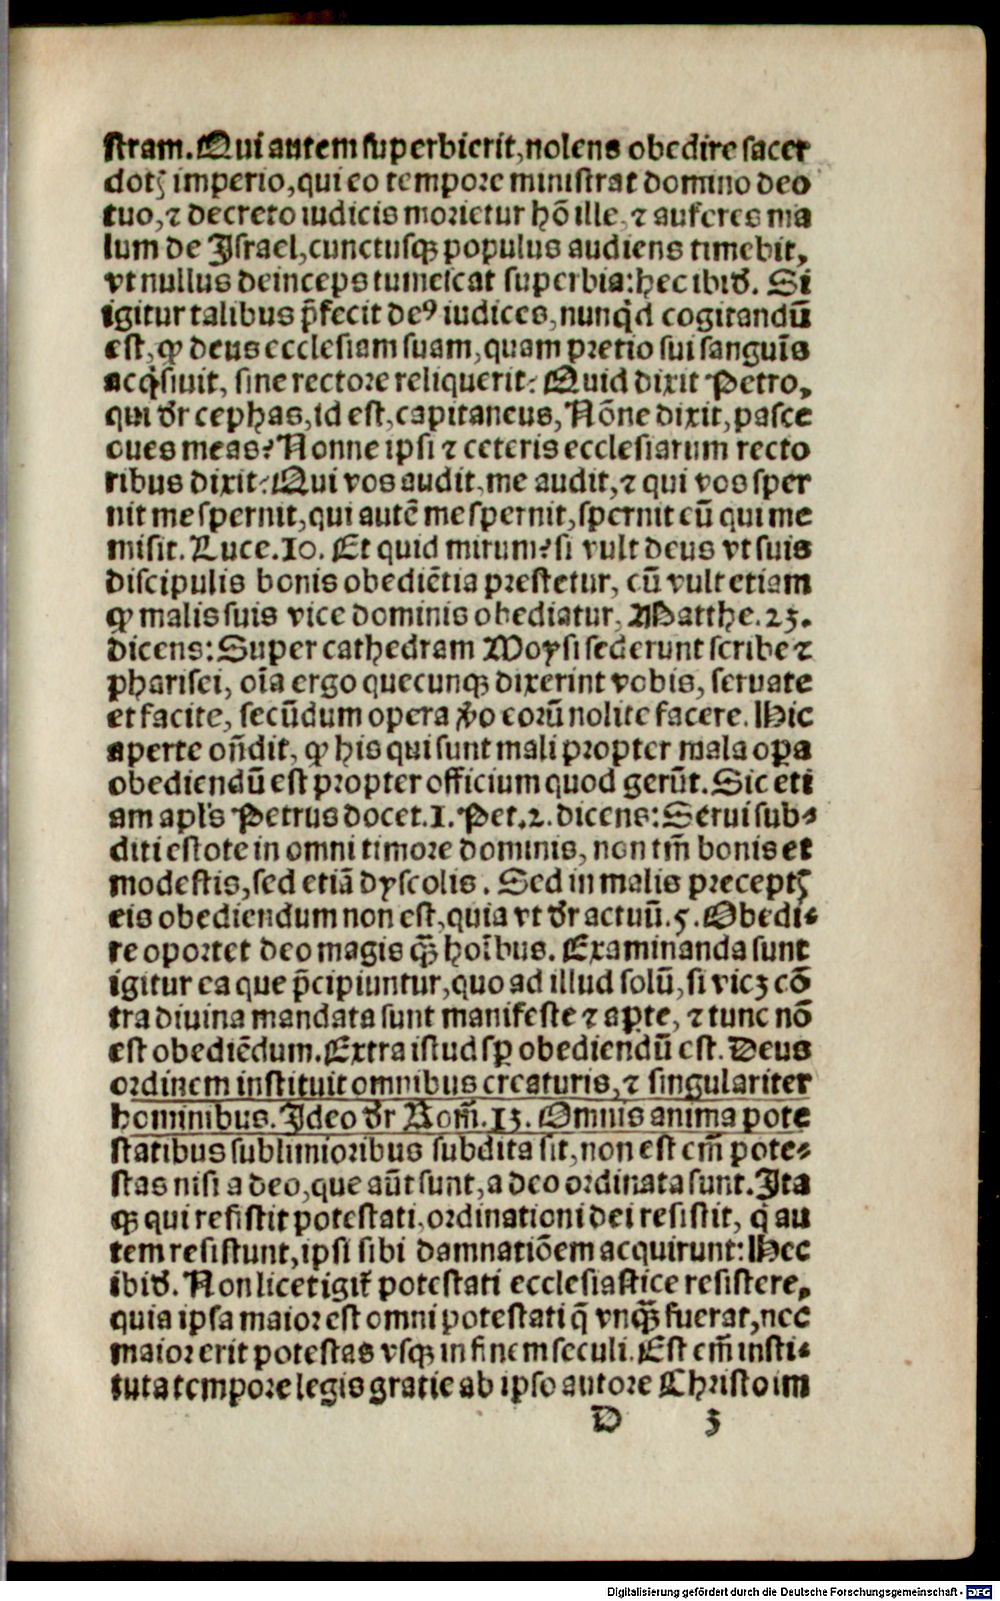 stram. Qui autem superbierit, nolens obedire sacer
dotꝫ imperio, qui eo tempore ministrat domino deo
tuo, ⁊ decreto iudicis morietur hō ille, ⁊ auferes ma
lum de Israel, cunctusqꝫ populus audiens timebit,
vt nullus deinceps tumescat superbia: hec ibidꝰ. Si
igitur talibus p̄fecit deꝰ iudices, nunqͥd cogitandū
est, ꝙ deus ecclesiam suam, quam pretio sui sanguīs
acqͥsiuit, sine rectore reliquerit: Quid dixit Petro,
qui dr̄ cephas, id est, capitaneus, Nōne dixit, pasce
oues meas? Nonne ipsi ⁊ ceteris ecclesiarum recto
ribus dixit: Qui vos audit, me audit, ⁊ qui vos sper
nit me spernit, qui autē me spernit, spernit eū qui me
misit. Luce. 10. Et quid mirum? si vult deus vt suis
discipulis bonis obediētia prestetur, cū vult etiam
ꝙ malis suis vice dominis obediatur, Matthe. 23.
dicens: Super cathedram Moysi sederunt scribe ⁊
pharisei, oīa ergo quecunqꝫ dixerint vobis, seruate
et facite, secūdum opera ꝟo eorū nolite facere. Hic
aperte on̄dit, ꝙ his qui sunt mali propter mala oꝑa
obediendū est propter officium quod gerūt. Sic eti
am apl's Petrus docet. 1. Pet. 2. dicens: Serui sub⸗
diti estote in omni timore dominis, non tm̄ bonis et
modestis, sed etiā dyscolis. Sed in malis preceptꝫ
eis obediendum non est, quia vt dr̄ actuū. 5. Obedi⸗
re oportet deo magis qꝫ̄ hoībus. Examinanda sunt
igitur ea que p̄cipiuntur, quo ad illud solū, si vicꝫ cō
tra diuina mandata sunt manifeste ⁊ aꝑte, ⁊ tunc nō
est obediēdum. Extra istud sꝑ obediendū est. Deus
ordinem instituit omnibus creaturis, ⁊ singulariter
hominibus. Ideo dr̄ Rom̄. 13. Omnis anima pote
statibus sublimioribus subdita sit, non est em̄ pote⸗
stas nisi a deo, que aūt sunt, a deo ordinata sunt. Ita
qꝫ qui resistit potestati, ordinationi dei resistit, qͥ au
tem resistunt, ipsi sibi damnatiōem acquirunt: Hec
ibidꝰ. Non licet igit̄ potestati ecclesiastice resistere,
quia ipsa maior est omni potestati q̄ vnqꝫ̄ fuerat, nec
maior erit potestas vsqꝫ in finem seculi. Est em̄ insti⸗
tuta tempore legis gratie ab ipso autore Christo im
D 3
Digitalisierung gefördert durch die Deutsche Forschungsgemeinschaft - DFG